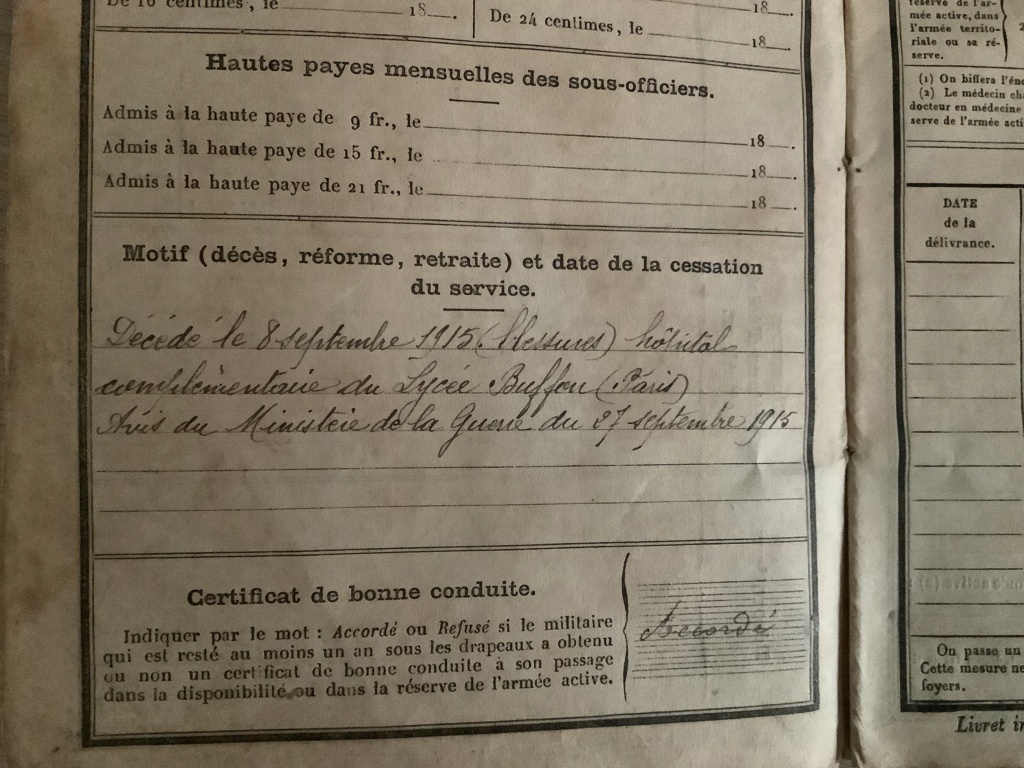 De 16 centimes, le 18 .
De 24 centimes, le 18 .
18 .
Hautes payes mensuelles des sous-officiers.
Admis à la haute paye de 9 fr., le 18 .
Admis à la haute paye de 15 fr., le 18 .
Admis à la haute paye de 21 fr., le 18 .
Motif (décès, réforme, retraite) et date de la cessation
du service.
Décédé le 8 septembre 1915 (blessures) hôpital
complémentaire du Lycée Buffon (Paris)
Avis du Ministère de la Guerre du 27 septembre 1915
Certificat de bonne conduite.
Indiquer par le mot : Accordé ou Refusé si le militaire
qui est resté au moins un an sous les drapeaux a obtenu
ou non un certificat de bonne conduite à son passage
dans la disponibilité ou dans la réserve de l'armée active.
Accordé
réserve de l'ar-
mée active, dans
l'armée territo-
riale ou sa ré-
serve.
(1) On biffera
(2) Le médecin
docteur en médecine
serve de l'armée
DATE
de la
délivrance.
On passe un
Cette mesure
foyers.
Livret